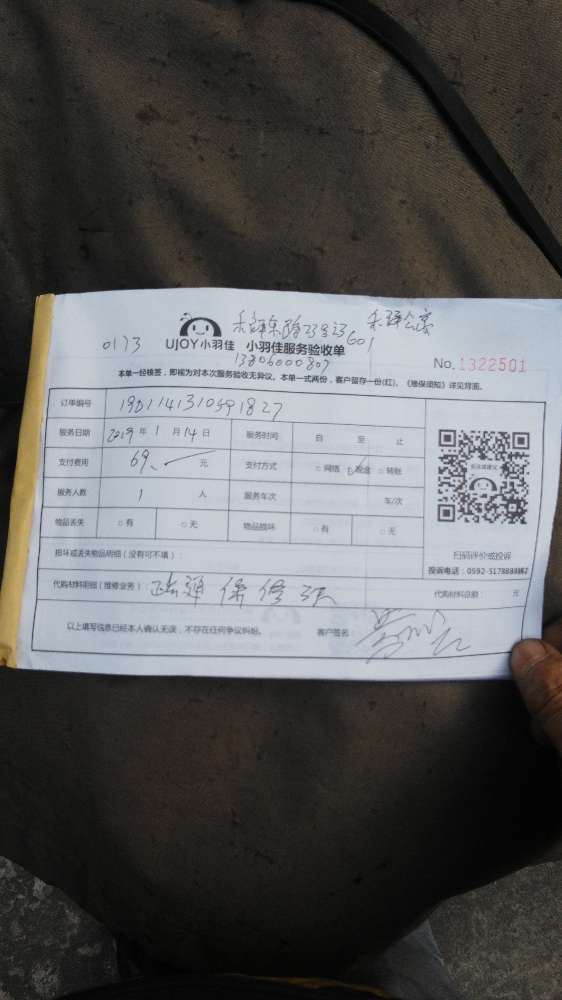 0173
UJOY小羽佳 小羽佳服务验收单
601
13806000807
No. 1322501
本单一经核签，即视为对本次服务验收无异议。本单一式两份，客户留存一份(红)。《维保须知》详见背面。
订单编号 1901141310591827
服务日期 2019 年 1 月 14 日 服务时间 自 至 止
支付费用 69 元 支付方式 □ 网络 □ 现金 □ 转账
服务人数 1 人 服务车次 车/次
物品丢失 □ 有 □ 无 物品损坏 □ 有 □ 无
扫码评价或投诉
损坏或丢失物品明细（没有可不填）：
投诉电话：0592-5178888转2
代购材料明细（维修业务）： 保修
代购材料总额： 元
以上填写信息已经本人确认无误，不存在任何争议纠纷。 客户签名：